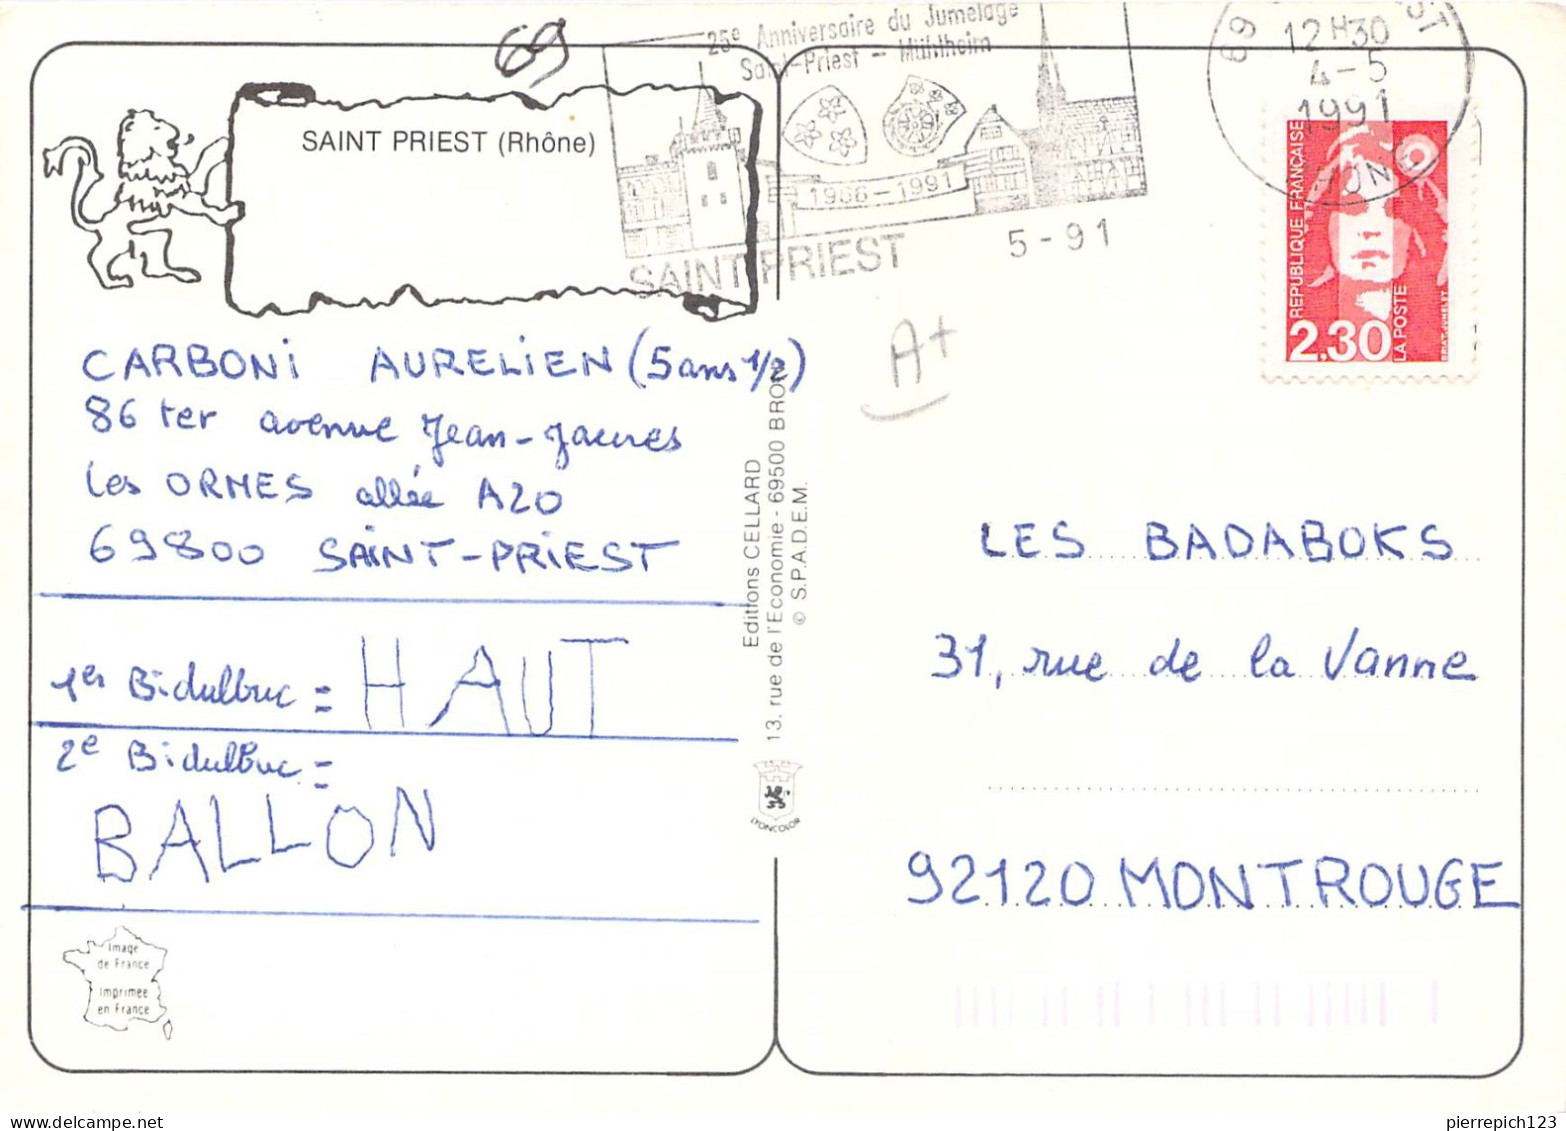 69
25e Anniversaire du Jumelage
Saint-Priest - Mühlheim
1966-1991
SAINT PRIEST
5-91
69
12H30
4-5
1991
SAINT PRIEST (Rhône)
REPUBLIQUE FRANÇAISE
2,30
LA POSTE
CARBONI AURELIEN (5 ans 1/2)
86 ter avenue Jean-Jaures
Les ORMES allée A20
69800 SAINT-PRIEST
1er Bidulbuc = HAUT
2e Bidulbuc =
BALLON
Image
de France
Imprimée
en France
Editions CELLARD
13, rue de l'Economie - 69500 BRON
© S.P.A.D.E.M.
LYONCOLOR
A+
LES BADABOKS
31, rue de la Vanne
92120 MONTROUGE
pierrepich123